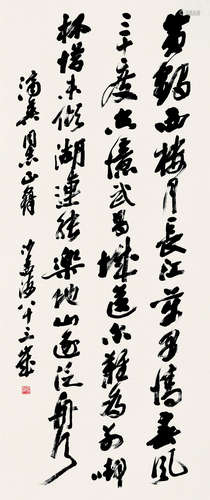 黄鹤西楼月长江万里情春风
三十度空忆武昌城送尔难为别衔
杯惜未倾湖连张乐地山逐泛舟行
英同志 沙孟海八十三岁